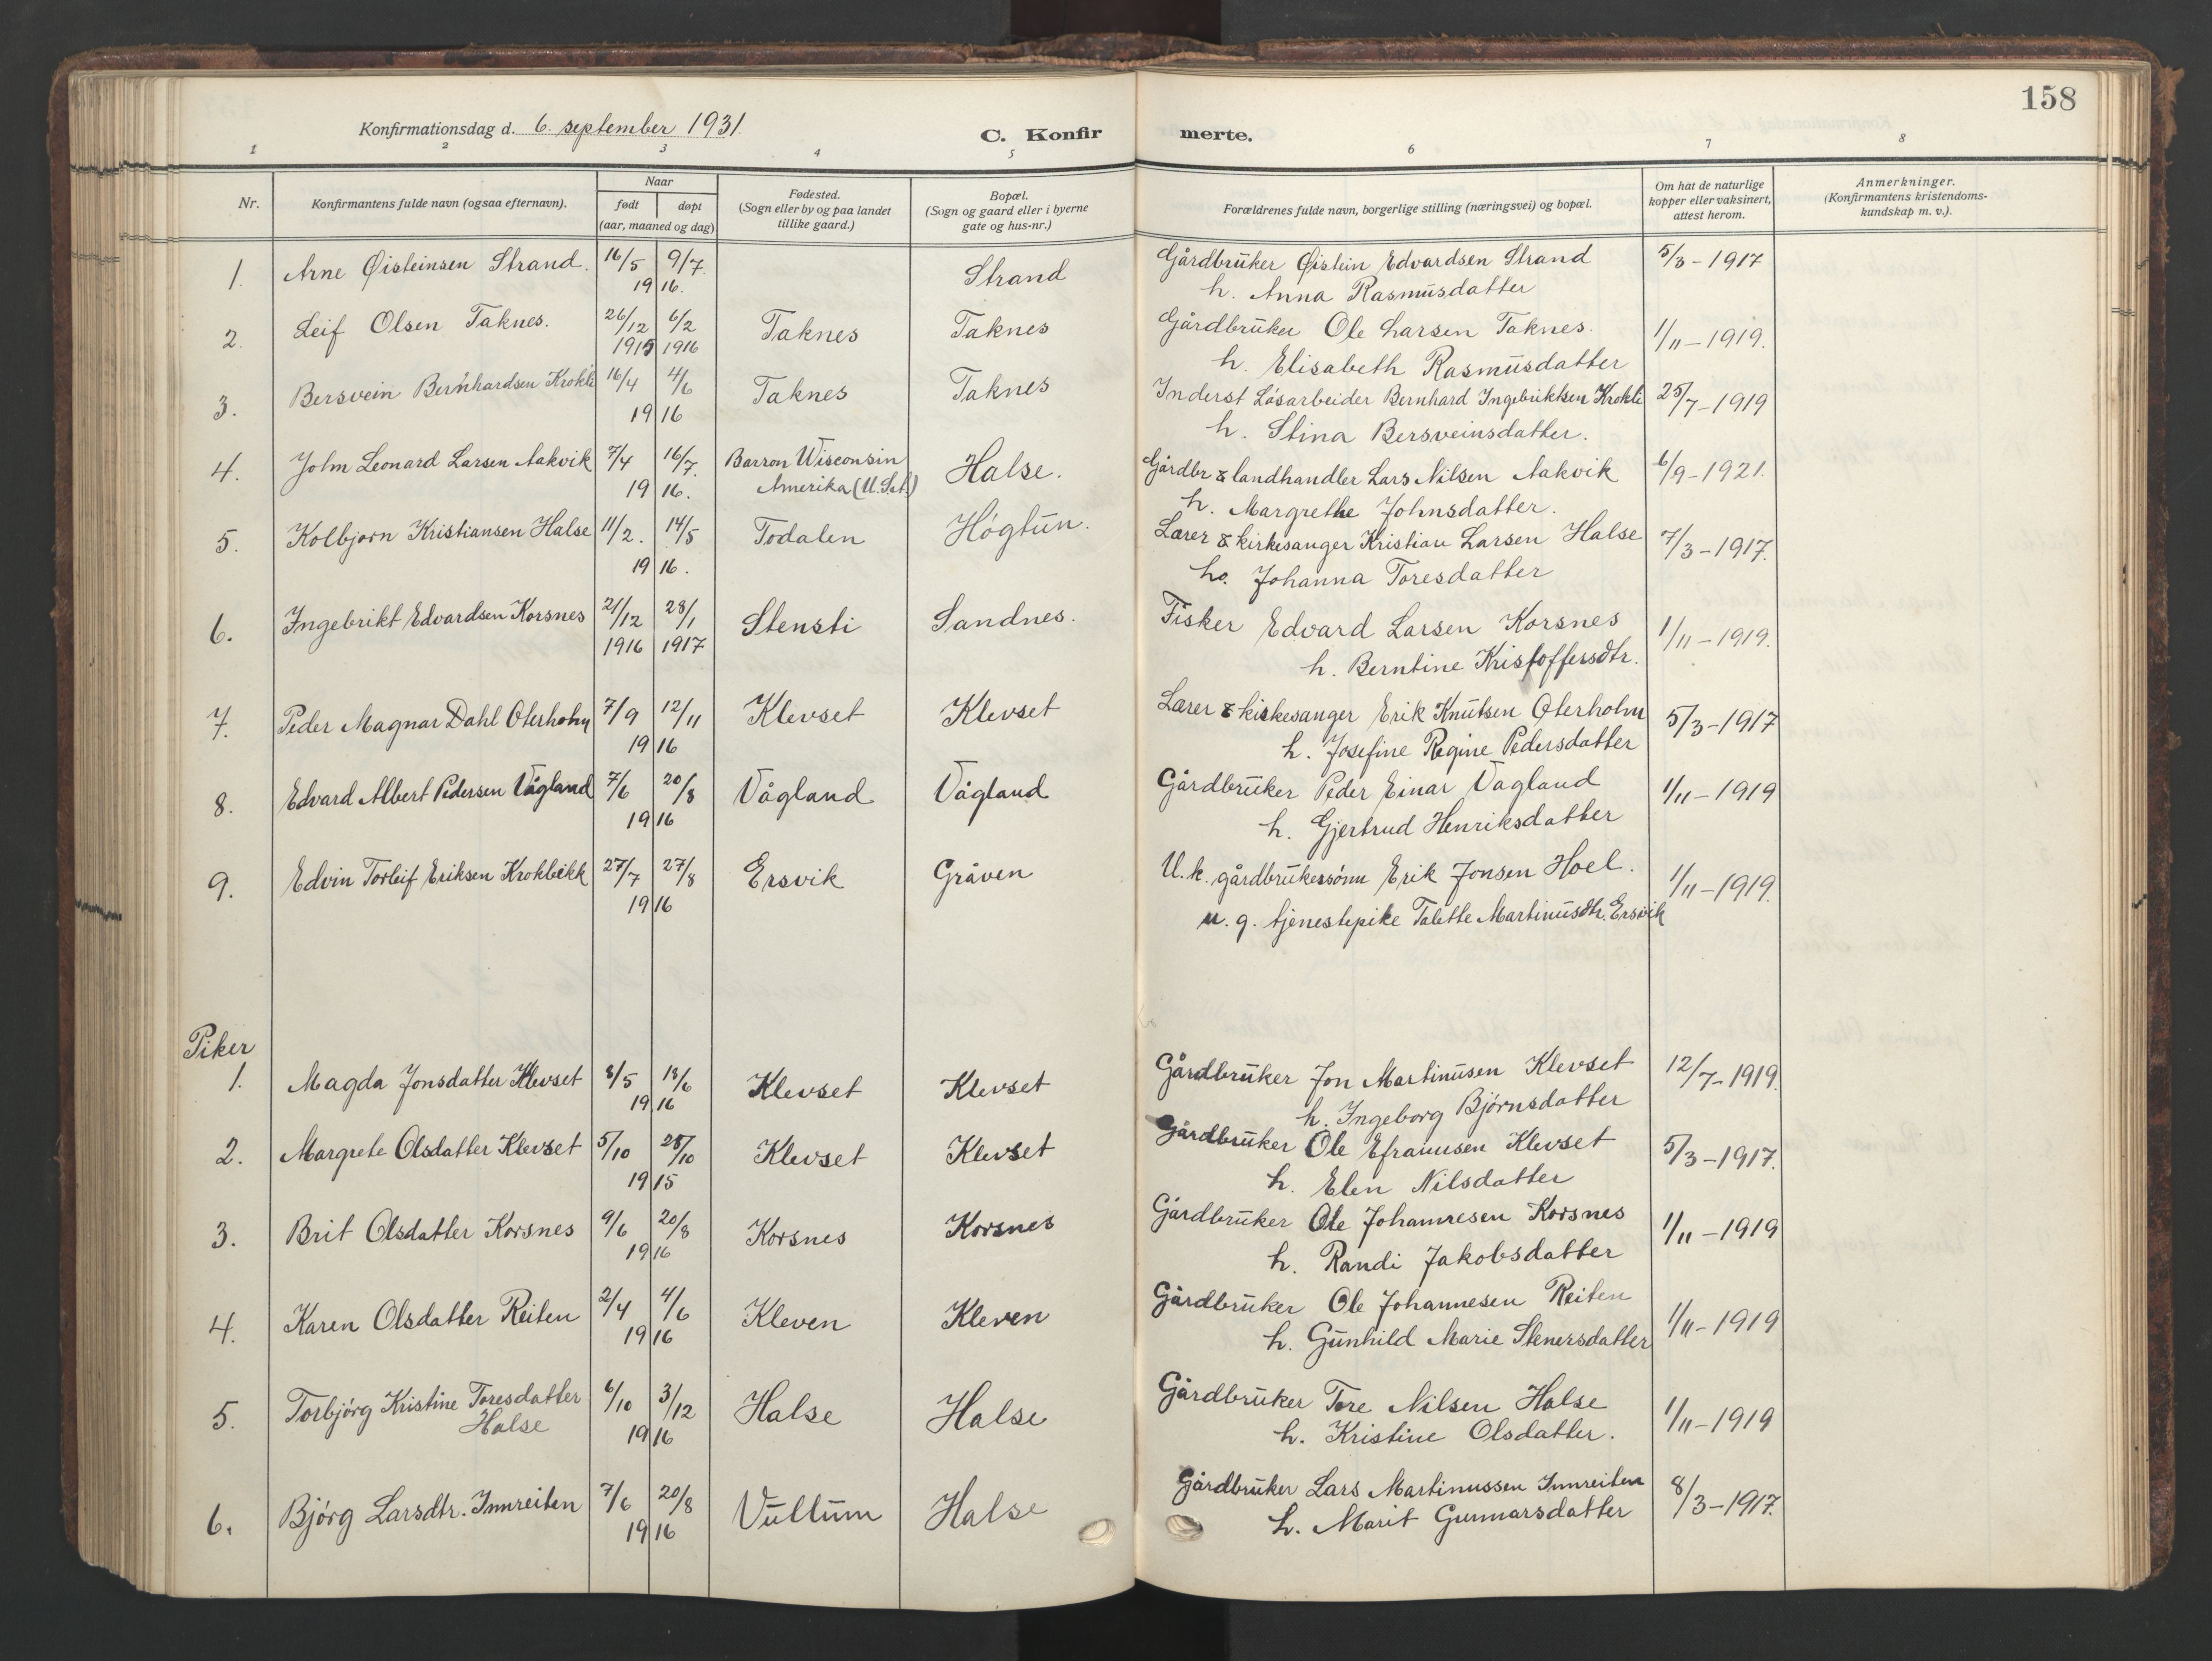 158
Konfirmationsdag d. 6. september 1931.
C. Konfirmerte.
1 2 3 4 5 6 7 8
Nr.
Konfirmantens fulde navn (ogsaa efternavn).
Naar
født døpt
(aar, maaned og dag)
Fødested.
(Sogn eller by og paa landet
tillike gaard.)
Bopæl.
(Sogn og gaard eller i byerne
gate og hus-nr.)
Forældrenes fulde navn, borgerlige stilling (næringsvei) og bopæl.
Om hat de naturlige
kopper eller vaksinert,
attest herom.
Anmerkninger.
(Konfirmantens kristendoms-
kundskap m. v.).
1. Arne Øisteinsen Strand. 16/5 9/7 Strand Gårdbruker Øistein Edvardsen Strand 5/3-1917
1916. h. Anna Rasmusdatter
2. Leif Olsen Taknes. 26/12 6/2 Taknes Taknes Gårdbruker Ole Larsen Taknes. 1/11-1919.
1915 1916 h. Elisabeth Rasmusdatter
3. Bersvein Bernhardsen Krokli 16/4 4/6 Taknes Taknes Inderst Løsarbeider Bernhard Ingebriktsen Krokli 25/7-1919
1916 h. Stina Bersveinsdatter.
4. John Leonard Larsen Aakvik 7/4 16/7. Barron Wisconsin Halse. Gårdbr & landhandler Lars Nilsen Aakvik 6/9-1921.
1916. Amerika (U. Sat.) h. Margrethe Johnsdatter.
5. Kolbjørn Kristiansen Halse 11/2. 14/5 Todalen Høgtun. Lærer & kirkesanger Kristian Larsen Halse 7/3-1917.
1916. h. Johanna Toresdatter
6. Ingebrikt Edvardsen Korsnes 21/12 28/1 Stensti Sandnes. Fisker Edvard Larsen Korsnes 1/11-1919.
1916 1917 h. Berntine Kristoffersdtr.
7. Peder Magnar Dahl Oterholm 7/9 12/11 Klevset Klevset Lærer & kirkesanger Erik Knutsen Oterholm 5/3-1917
1916 h. Josefine Regine Pedersdatter
8. Edvard Albert Pedersen Vågland 7/6 20/8 Vågland Vågland Gårdbruker Peder Einar Vågland 1/11-1919
1916 h. Gjertrud Henriksdatter
9. Edvin Torleif Eriksen Krokbekk 27/7 27/8 Ersvik Gråven U.k. gårdbrukersønn Erik Jonsen Hoel. 1/11-1919.
1916 u. g. tjenestepike Talette Martinusdtr. Ersvik
Piker
1. Magda Jonsdatter Klevset 8/5 18/6 Klevset Klevset Gårdbruker Jon Martinusen Klevset 12/7-1919.
1916 h. Ingeborg Bjørnsdatter
2. Margrete Olsdatter Klevset 5/10 28/10 Klevset Klevset Gårdbruker Ole Efraimsen Klevset 5/3-1917.
1915 h. Elen Nilsdatter
3. Brit Olsdatter Korsnes 9/6 20/8 Korsnes Korsnes Gårdbruker Ole Johannesen Korsnes 1/11-1919
1916 h. Randi Jakobsdatter
4. Karen Olsdatter Reiten 2/4 4/6 Kleven Kleven Gårdbruker Ole Johannesen Reiten 1/11-1919
1916 h. Gunhild Marie Stenersdatter
5. Torbjørg Kristine Toresdatter 6/10 3/12 Halse Halse Gårdbruker Tore Nilsen Halse 1/11-1919
Halse 1916 h. Kristine Olsdatter.
6. Bjørg Larsdtr. Innreiten 7/6 20/8 Vullum Halse Gårdbruker Lars Martinussen Innreiten 8/3-1917.
1916 h. Marit Gunnarsdatter